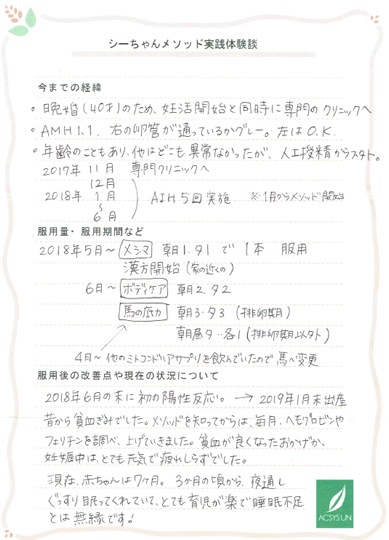 シーちゃんメソッド実践体験談
今までの経緯
• 晩婚(40才)のため、妊活開始と同時に専門のクリニックへ
• AMH1.1. 右の卵管が通っているかグレー。左はO.K.
• 年齢のこともあり、他はどこも異常なかったが、人工授精からスタート。
2017年11月 専門クリニックへ
12月
2018年 1月 AIH5回実施 ※1月からメソッド開始
〜
6月
服用量・服用期間など
2018年5月〜 メシマ 朝1.夕1 で 1本 服用
漢方開始(家の近くの)
6月〜 ボディケア 朝2.夕2
馬の底力 朝3.夕3 (排卵期)
朝昼夕..各1 (排卵期以外)
4月〜 他のミトコンドリアサプリを飲んでいたので馬へ変更
服用後の改善点や現在の状況について
2018年6月の末に初の陽性反応。→ 2019年1月末出産
昔から貧血ぎみでした。メソッドを知ってからは、毎月、ヘモグロビンや
フェリチンを調べ、上げていきました。貧血が良くなったおかげか、
妊娠中は、とても元気で疲れしらずでした。
現在、赤ちゃんは7ヶ月。3ヶ月の頃から、夜通し
ぐっすり眠ってくれていて、とても育児が楽で睡眠不足
とは無縁です!
ACSYSUN